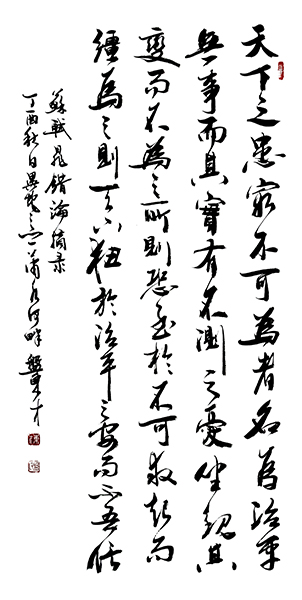 天下之患最不可為者名為治平
無事而其實有不測之憂坐觀其
變而不為之所則恐至於不可救起而
彊為之則天下狃於治平之安而不吾信
蘇軾晁錯論摘录
丁酉秋日河畔